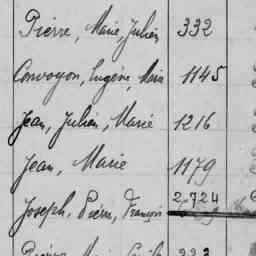 Pierre, Marie, Julien 332
Convoyon, Eugène, Marie 1145
Jean, Julien, Marie 1216
Jean, Marie 1179
Joseph, Pierre, François 2.724